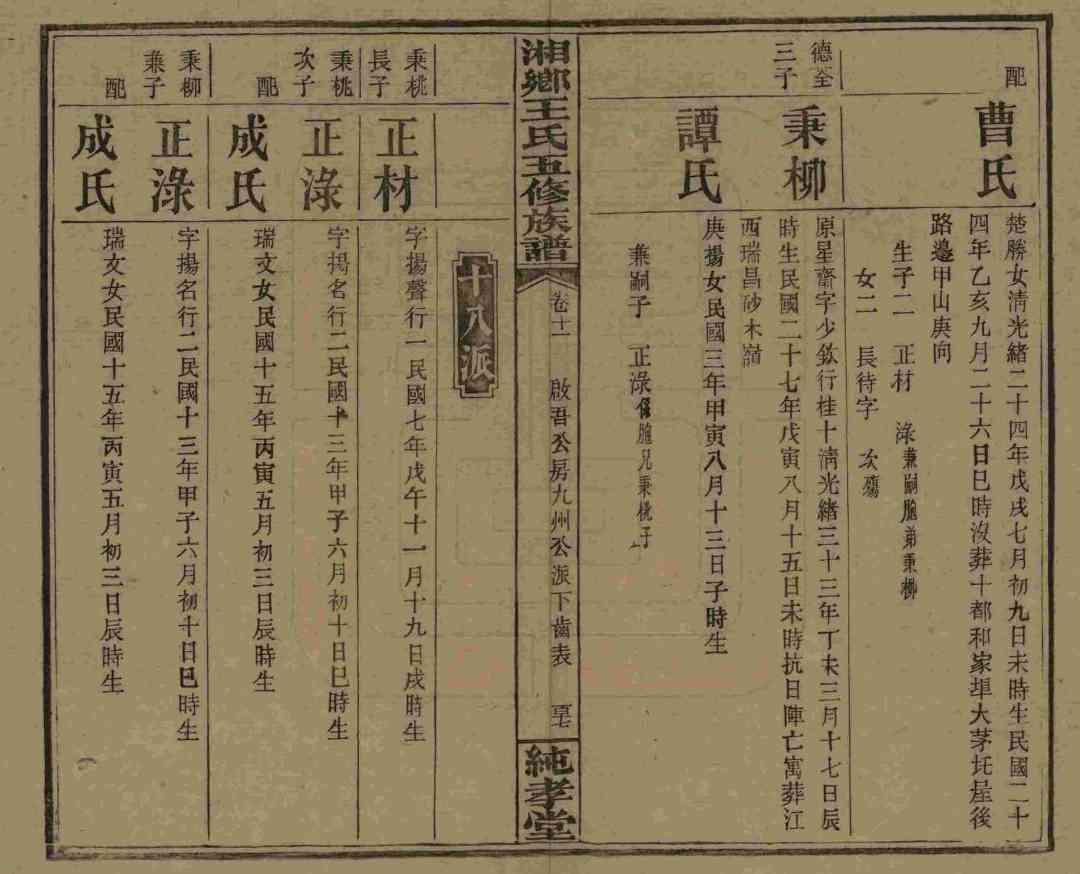 配
曹氏
楚勝女清光緒二十四年戊戌七月初九日未時生民國二十
四年乙亥九月二十六日巳時沒葬十都和家埠大茅坵屋後
路邊甲山庚向
生子二 正材 淥兼嗣胞弟秉柳
女二 長待字 次殤
德荃
三子
秉柳
原星齋字少欽行桂十清光緒三十三年丁未三月十七日辰
時生民國二十七年戊寅八月十五日未時抗日陣亡寓葬江
西瑞昌砂木嶺
譚氏
庚揚女民國三年甲寅八月十三日子時生
兼嗣子 正淥係胞兄秉桃子
湘鄉王氏五修族譜
卷十一
啟吾公房九州公派下齒表
純孝堂
十八派
秉桃
長子
正材
字揚聲行一民國七年戊午十一月十九日戌時生
秉桃
次子
正淥
字揚名行二民國十三年甲子六月初十日巳時生
配
成氏
瑞文女民國十五年丙寅五月初三日辰時生
秉柳
兼子
正淥
字揚名行二民國十三年甲子六月初十日巳時生
配
成氏
瑞文女民國十五年丙寅五月初三日辰時生